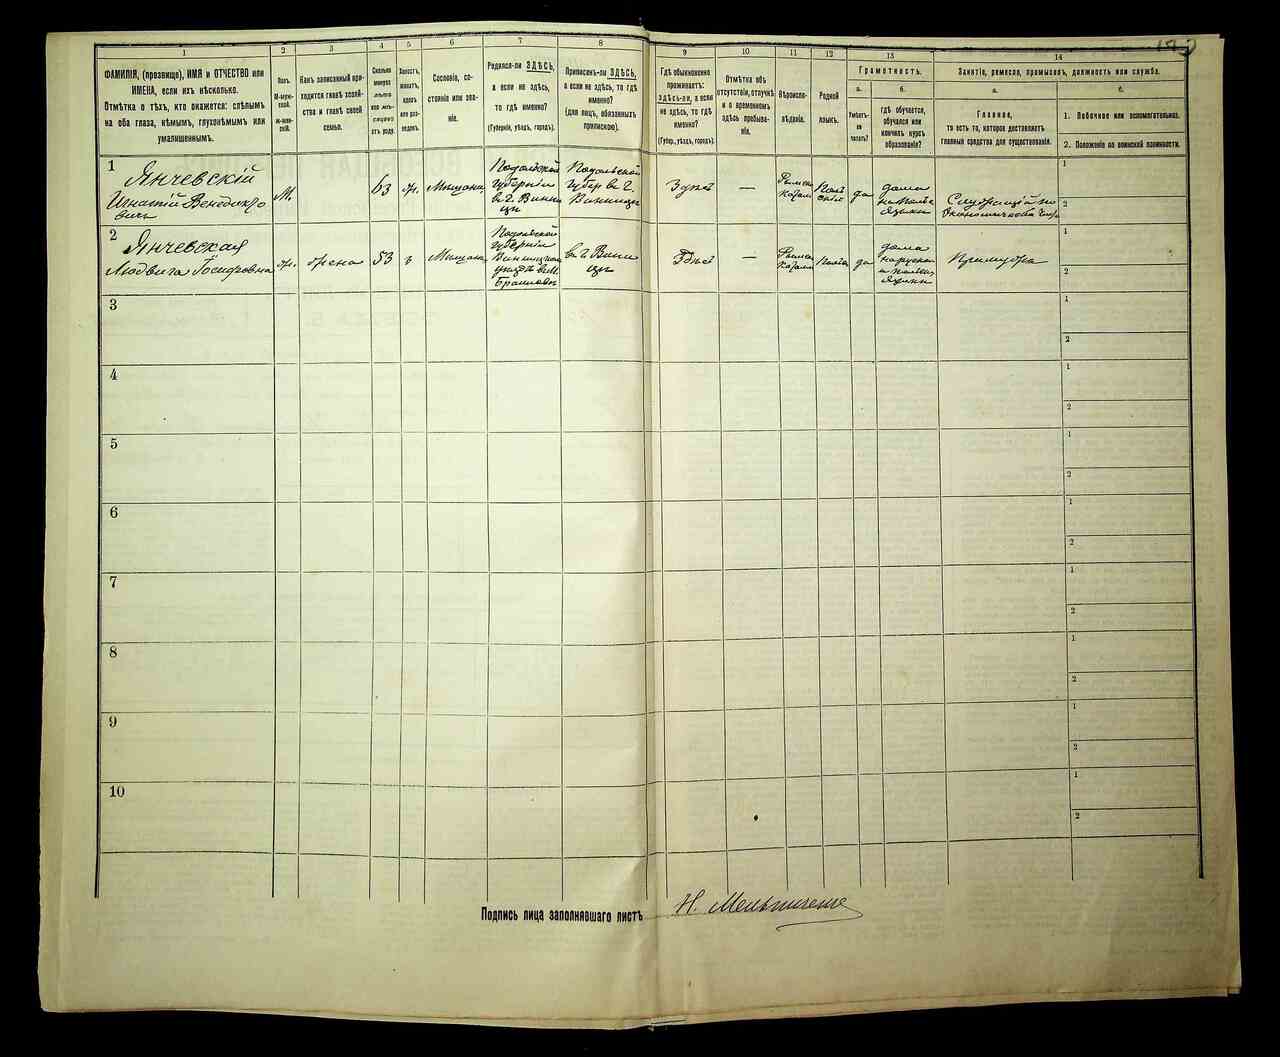 1
2
3
4
5
6
7
8
9
10
11
12
13
14
ФАМИЛІЯ, (прозвище), ИМЯ и ОТЧЕСТВО или
ИМЕНА, если ихъ нѣсколько.
Отмѣтка о тѣхъ, кто окажется: слѣпымъ
на оба глаза, нѣмымъ, глухонѣмымъ или
умалишеннымъ.
Полъ.
М-муж-
ской.
Ж-жен-
скій.
Какъ записанный при-
ходится главѣ хозяй-
ства и главѣ своей
семьи.
Сколько
минуло
лѣтъ
или мѣ-
сяцевъ
отъ роду.
Холостъ,
женатъ,
вдовъ
или раз-
веденъ.
Сословіе, со-
стояніе или зва-
ніе.
Родился-ли ЗДѢСЬ,
а если не здѣсь,
то гдѣ именно?
(Губернія, уѣздъ, городъ).
Приписанъ-ли ЗДѢСЬ,
а если не здѣсь, то гдѣ
именно?
(для лицъ, обязанныхъ
припискою).
Гдѣ обыкновенно
проживаетъ:
здѣсь-ли, а если
не здѣсь, то гдѣ
именно?
(Губер., уѣздъ, городъ).
Отмѣтка объ
отсутствіи, отлучкѣ
и о временномъ
здѣсь пребыва-
ніи.
Вѣроиспо-
вѣданіе.
Родной
языкъ.
Грамотность.
а.
б.
Умѣетъ-
ли
читать?
гдѣ обучается,
обучался или
кончилъ курсъ
образованія?
Занятіе, ремесло, промыселъ, должность или служба.
а.
б.
Главное,
то есть то, которое доставляетъ
главныя средства для существованія.
1. Побочное или вспомогательное.
2. Положеніе по воинской повинности.
1
Янчевскій
Игнатій Венедикто
вичъ
М.
63
ж.
Мѣщанин
Подольской
губерніи
въ г. Винни
цѣ
Подольской
губер въ г.
Винницѣ
Здѣсь
—
Римск
катол
Поль
скій
да
дома
1
2
2
Янчевская
Людвига Іосифовна
ж.
жена
53
з
Мѣщанка
Подольской
губерніи
Винницкаго
уѣзда въ м.
Браиловѣ
въ г. Винни
цѣ
Здѣсь
—
Римск
катол
Польск
да
дома
на русском
и польск
языкѣ
При мужѣ
1
2
3
1
2
4
1
2
5
1
2
6
1
2
7
1
2
8
1
2
9
1
2
10
1
2
Подпись лица заполнявшаго листъ
Н. Мельниченко